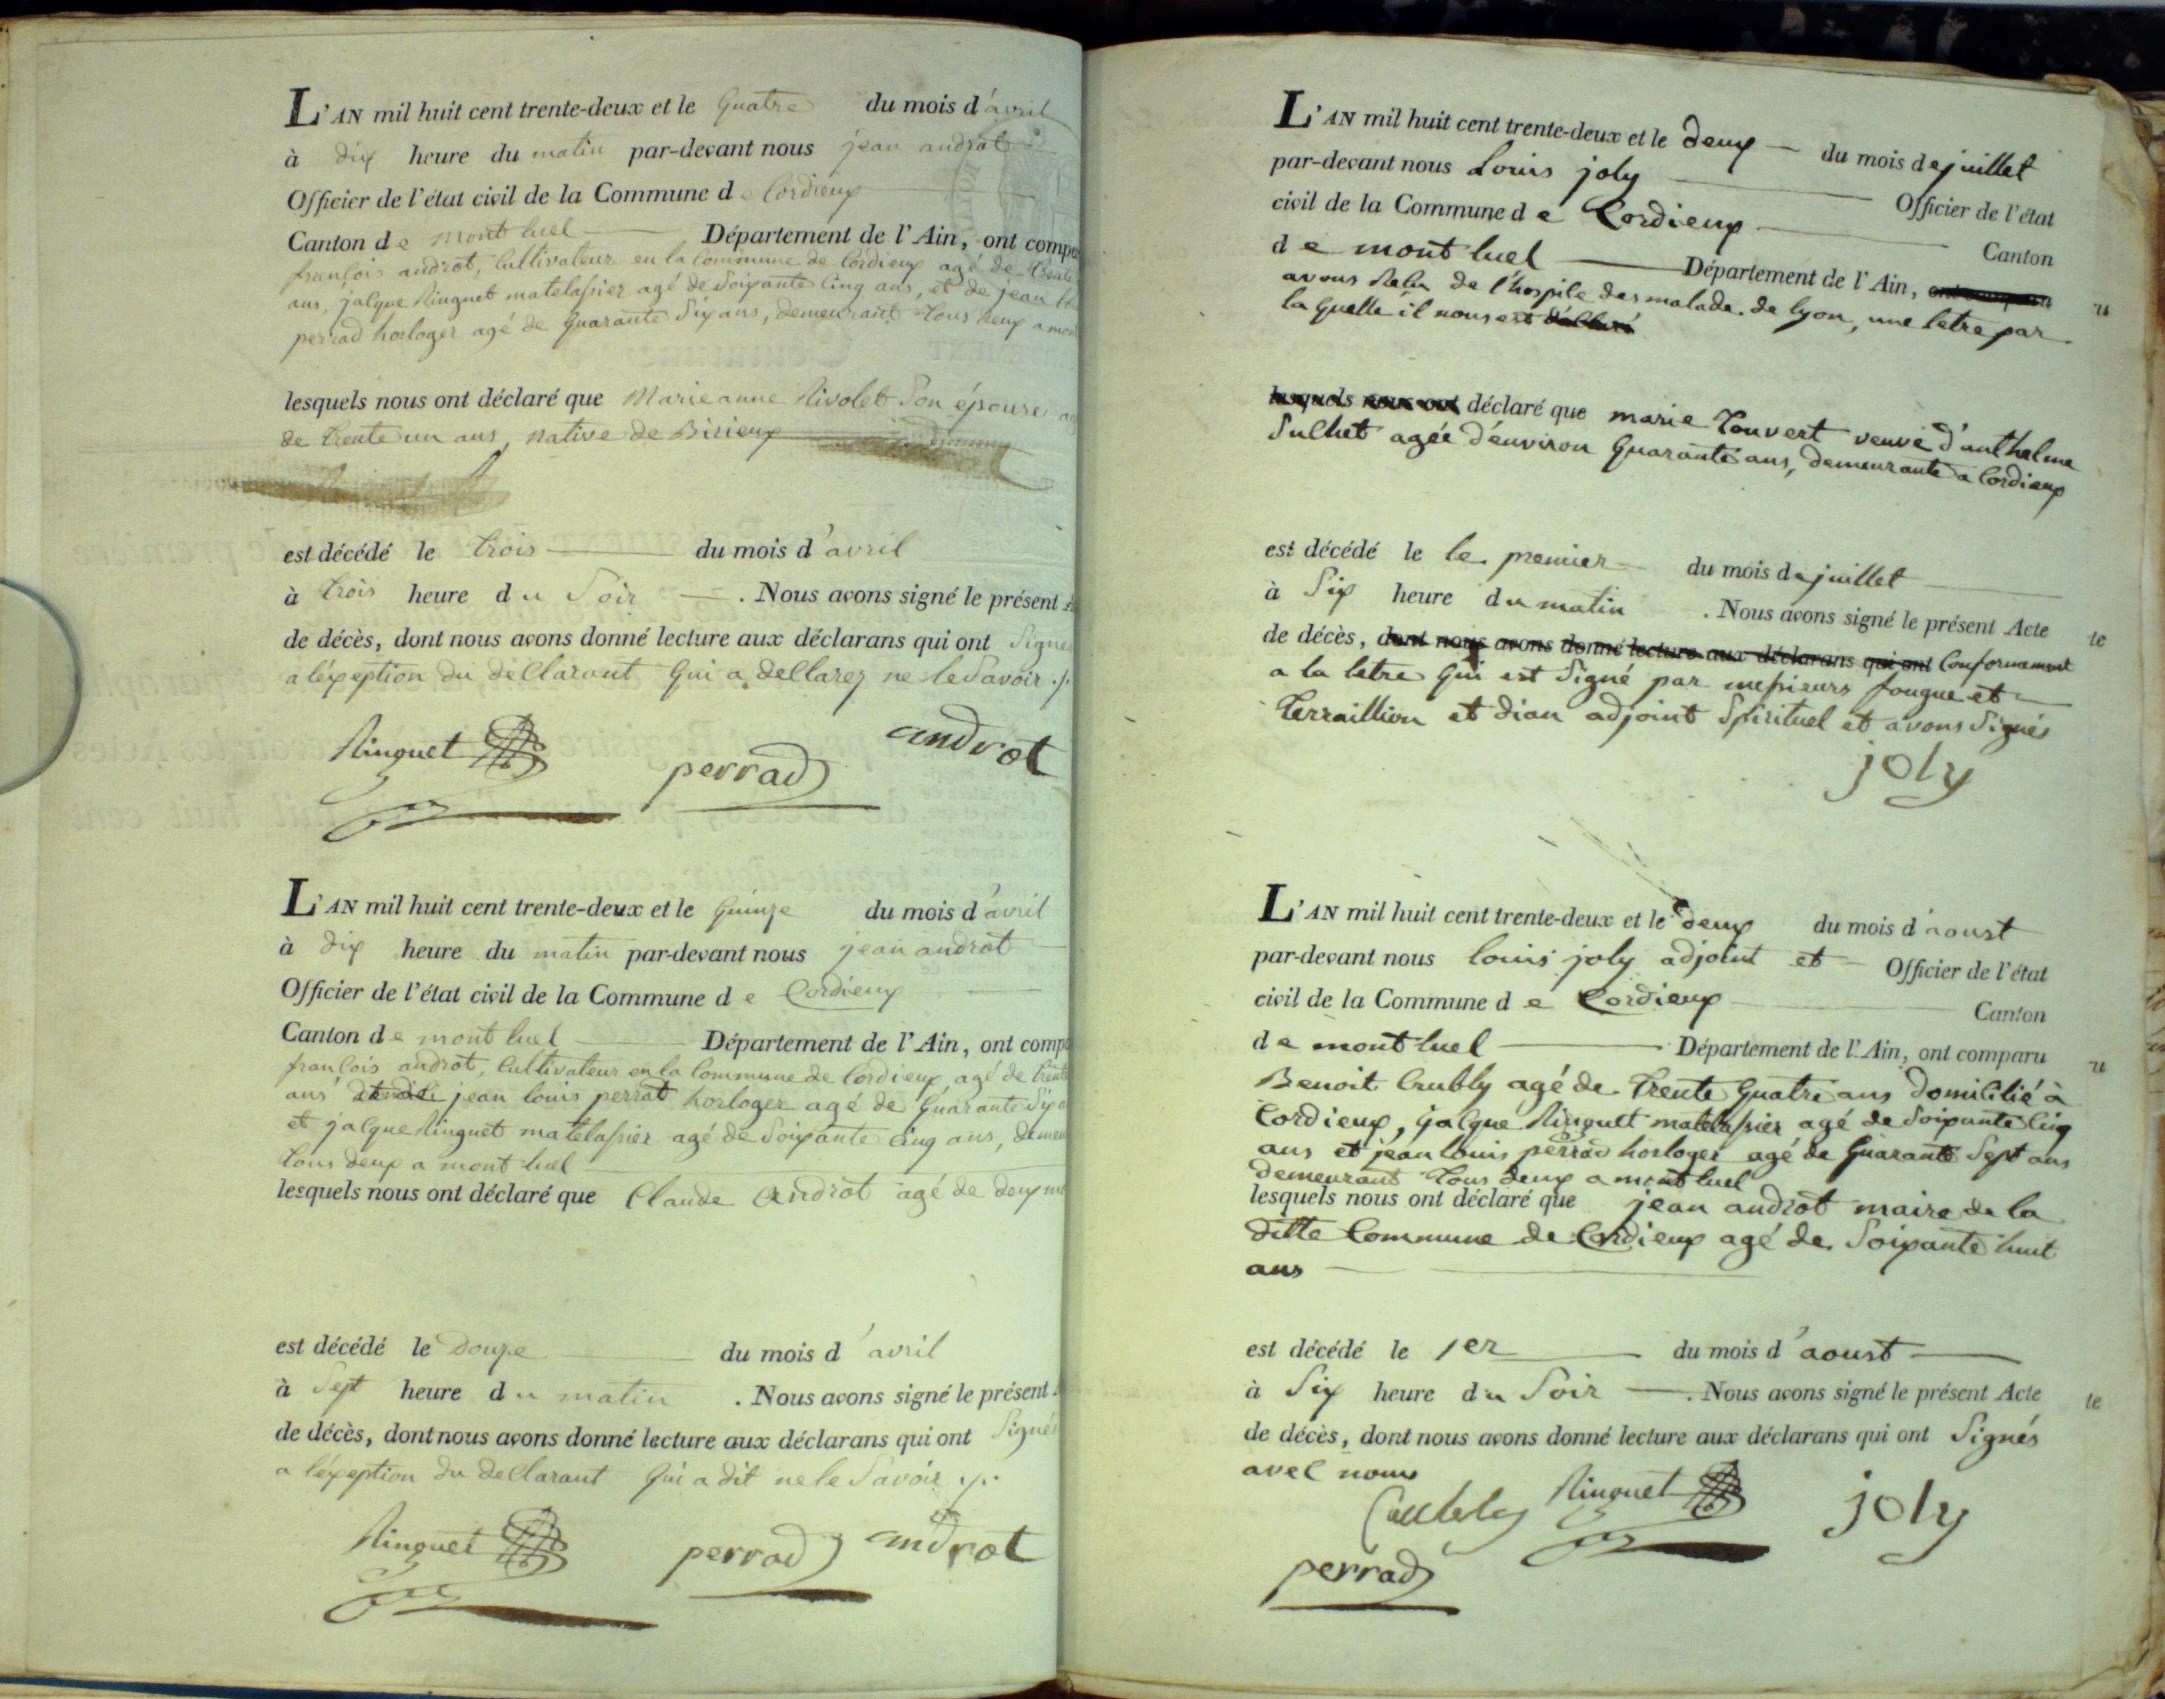 L'AN mil huit cent trente-deux et le quatre du mois d'avril
à dix heure du matin par-devant nous jean androt
Officier de l'état civil de la Commune de Cordieux
Canton de montluel Département de l'Ain, ont compa
françois androt, Cultivateur en la Commune de Cordieux agé de trente
ans, jalque Ringuet matelassier agé de Soixante Cinq ans, et de jean
perrad horloger agé de quarante Six ans, demeurant tous deux a mont
lesquels nous ont déclaré que Marieanne Rivolet Son épouse
de trente un ans, native de Birieux
est décédé le trois du mois d'avril
à trois heure du Soir. Nous avons signé le présent
de décès, dont nous avons donné lecture aux déclarans qui ont Signé
a léxeption du déClarant qui a deClarez ne le Savoir ./.
Ringuet perrad androt
L'AN mil huit cent trente-deux et le quinze du mois d'avril
à dix heure du matin par-devant nous jean androt
Officier de l'état civil de la Commune de Cordieux
Canton de montluel Département de l'Ain, ont comp
françois androt, Cultivateur en la Commune de Cordieux, agé de trente
ans jean louis perrat horloger agé de quarante Six
et jalque Ringuet matelassier agé de Soixante Cinq ans, demeu
tous deux a montluel
lesquels nous ont déclaré que Claude Androt agé de deux
est décédé le Douze du mois d'avril
à Sept heure du matin. Nous avons signé le présent
de décès, dont nous avons donné lecture aux déclarans qui ont Signés
a léxeption du deClarant qui a dit ne le Savoir ./.
Ringuet perrad androt
L'AN mil huit cent trente-deux et le deux du mois de juillet
par-devant nous Louis joly Officier de l'état
civil de la Commune de Cordieux Canton
de montluel Département de l'Ain, ont comparu
avons Relu de l'hospile des malade de lyon, une letre par
la quelle il nous est déClaré
lesquels nous ont déclaré que marie Touvert veuve d'anthelme
Sulhet agée d'environ quarante ans, demeurante a Cordieux
est décédé le le premier du mois de juillet
à Six heure du matin. Nous avons signé le présent Acte
de décès, dont nous avons donné lecture aux déclarans qui ont Conformement
a la letre qui est Signé par messieurs fougue et
terraillion et dian adjoint Spirituel et avons Signés
joly
L'AN mil huit cent trente-deux et le deux du mois d'aoust
par-devant nous louis joly adjoint et Officier de l'état
civil de la Commune de Cordieux Canton
de montluel Département de l'Ain, ont comparu
Benoit Crubly agé de trente quatre ans Domicilié à
Cordieux, jalque Ringuet matelassier agé de Soixante Cinq
ans et jean louis perrad horloger agé de quarante Sept ans
demeurant tous deux a montluel
lesquels nous ont déclaré que jean androt maire de la
ditte Commune de Cordieux agé de Soixante huit
ans
est décédé le 1er du mois d'aoust
à Six heure du Soir. Nous avons signé le présent Acte
de décès, dont nous avons donné lecture aux déclarans qui ont Signés
avec nous
Ringuet joly
perrad